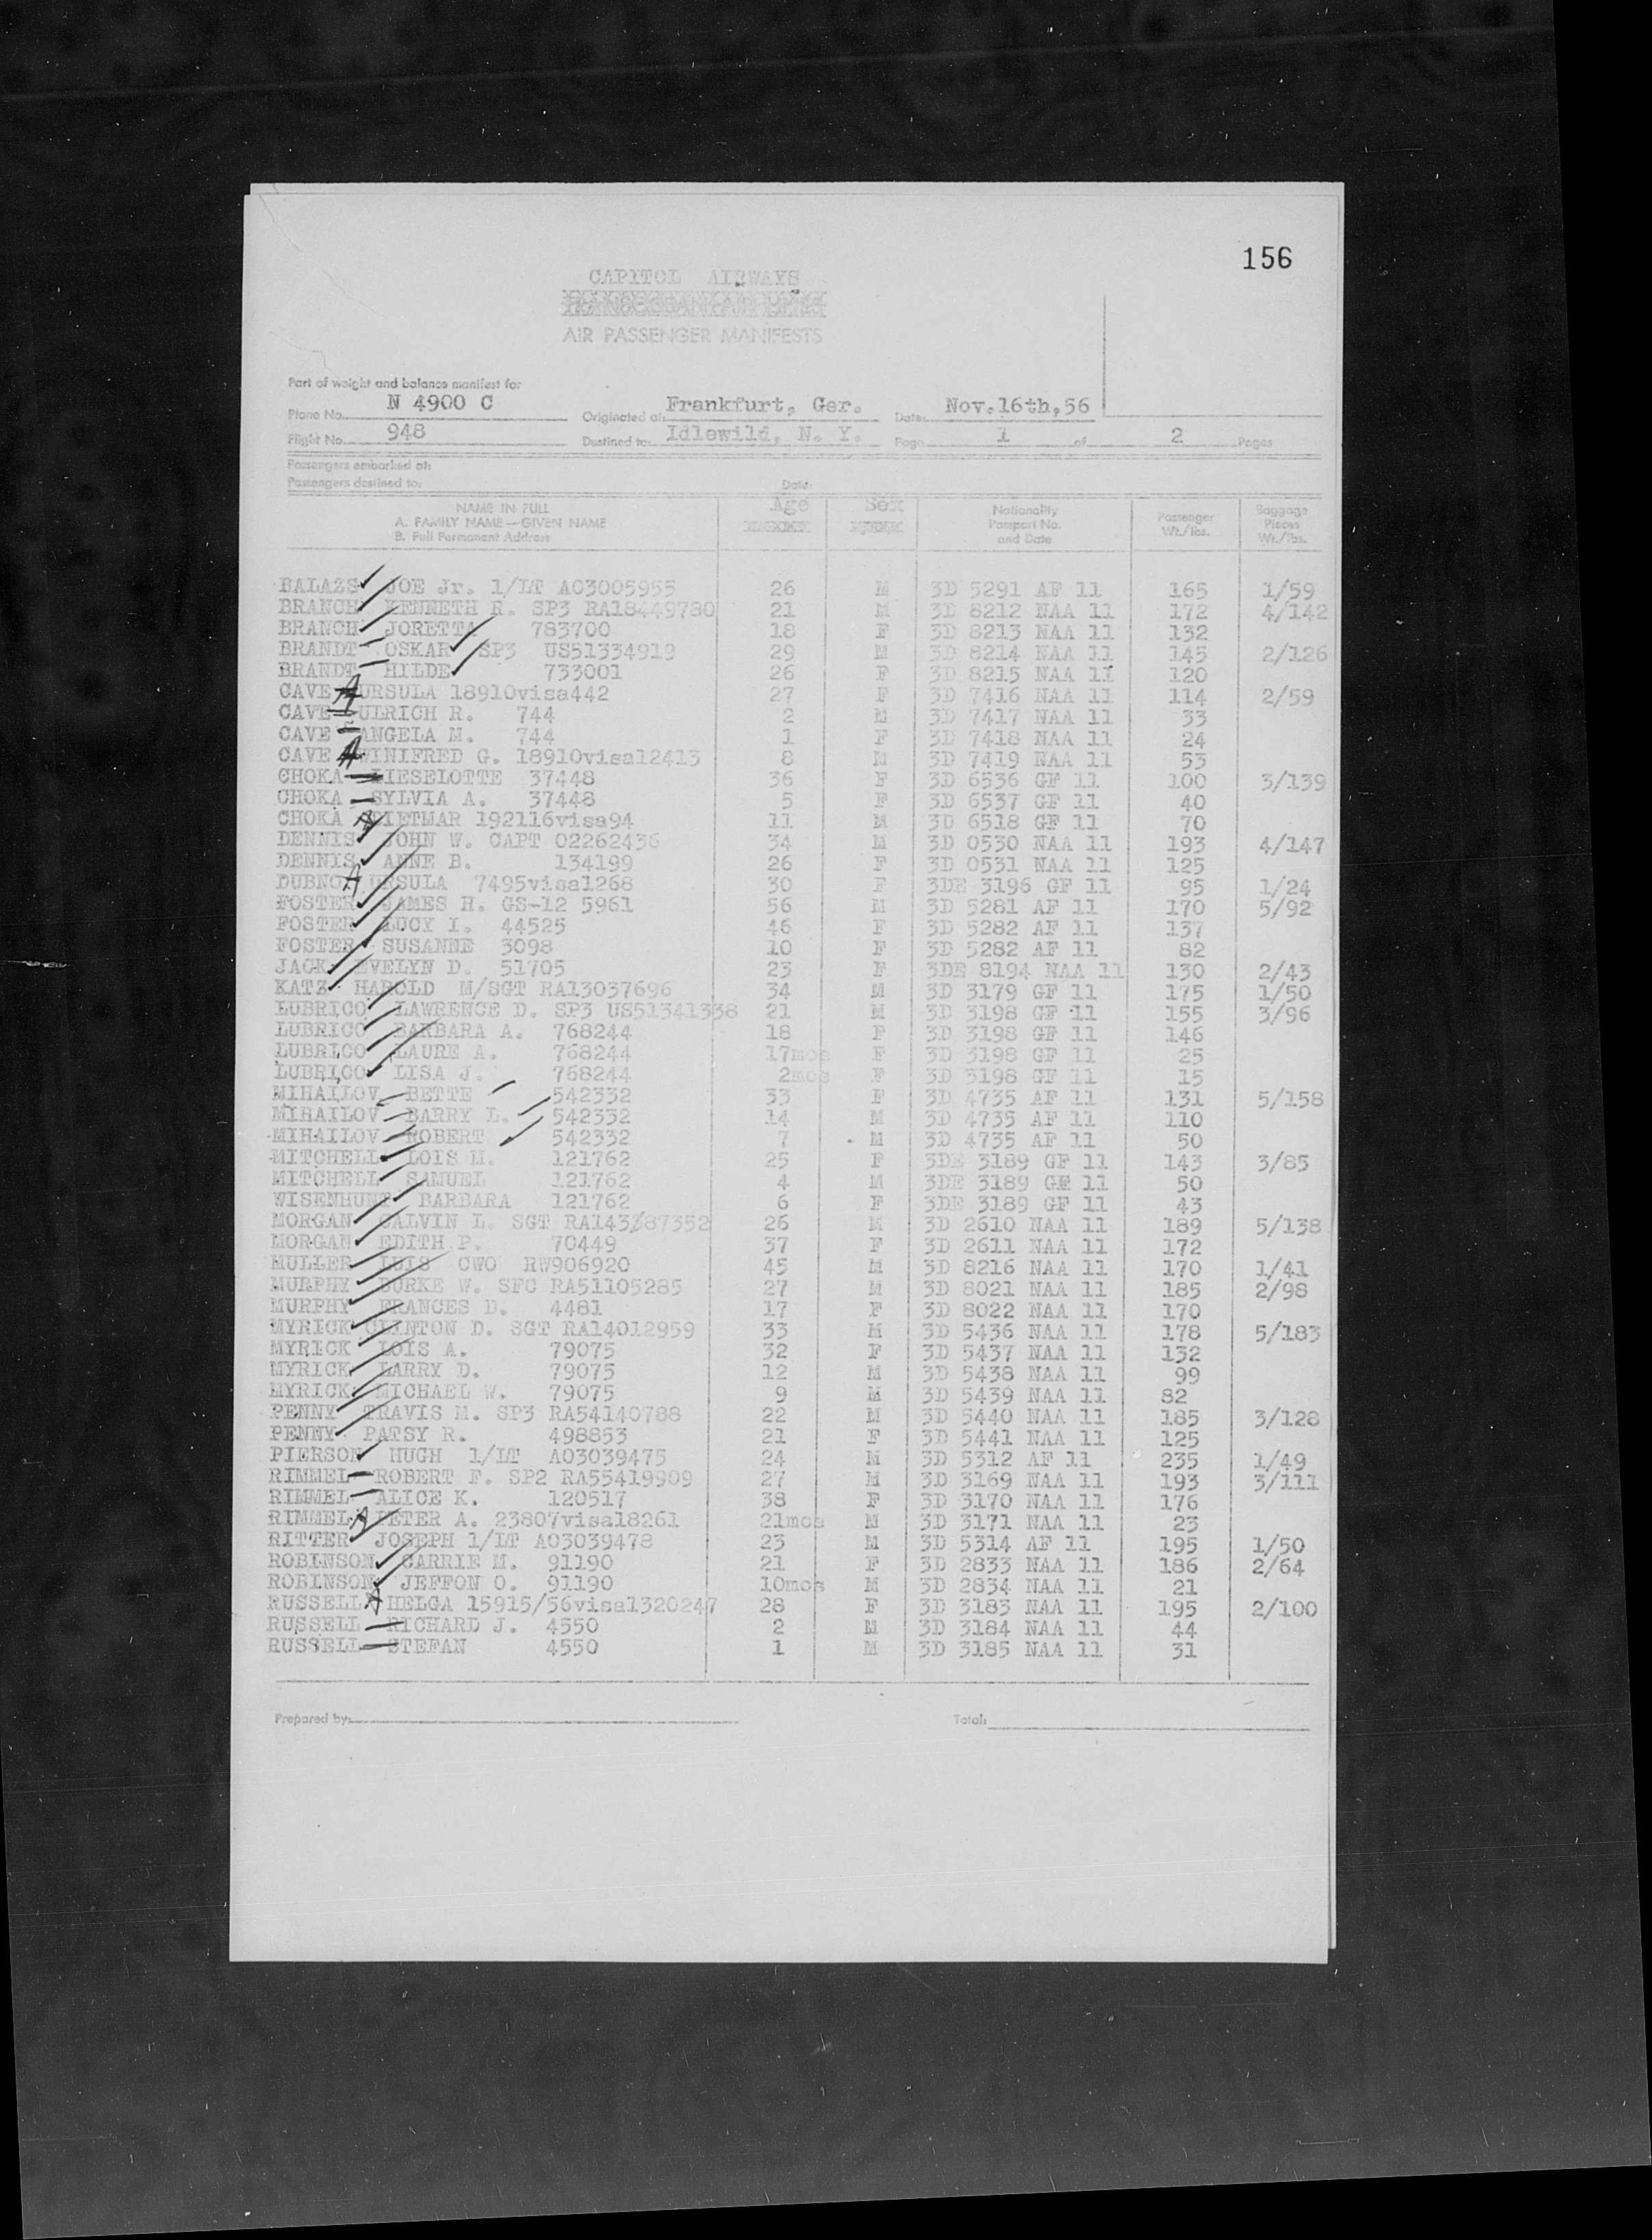 156
CAPITOL AIRWAYS
AIR PASSENGER MANIFESTS
Part of weight and balance manifest for
Plane No. N 4900 C Originated at: Frankfurt, Ger. Date: Nov.16th,56
Flight No. 948 Dustined to: Idlewild, N. Y. Page 1 of 2 Pages
Passengers embarked at:
Passengers destined to: Date:
NAME IN FULL Age Sex Nationality Passenger Baggage
A. FAMILY NAME—GIVEN NAME Passport No. Wt./lbs. Pieces
B. Full Permanent Address and Date Wt./lbs.
BALAZS JOE Jr. 1/LT AO3005955 26 M 3D 5291 AF 11 165 1/59
BRANCH KENNETH R. SP3 RA18449780 21 M 3D 8212 NAA 11 172 4/142
BRANCH JORETTA 783700 18 F 3D 8213 NAA 11 132
BRANDT OSKAR SP3 US51334919 29 M 3D 8214 NAA 11 145 2/126
BRANDT HILDE 733001 26 F 3D 8215 NAA 11 120
CAVE A URSULA 18910visa442 27 F 3D 7416 NAA 11 114 2/59
CAVE ULRICH R. 744 2 M 3D 7417 NAA 11 33
CAVE ANGELA M. 744 1 F 3D 7418 NAA 11 24
CAVE A WINIFRED G. 18910visa12413 8 M 3D 7419 NAA 11 53
CHOKA LIESELOTTE 37448 36 F 3D 6536 GF 11 100 3/139
CHOKA SYLVIA A. 37448 5 F 3D 6537 GF 11 40
CHOKA A DIETMAR 192116visa94 11 M 3D 6518 GF 11 70
DENNIS JOHN W. CAPT 02262436 34 M 3D 0530 NAA 11 193 4/147
DENNIS ANNE B. 134199 26 F 3D 0531 NAA 11 125
DUBNO A URSULA 7495visa1268 30 F 3DE 3196 GF 11 95 1/24
FOSTER JAMES H. GS-12 5961 56 M 3D 5281 AF 11 170 5/92
FOSTER LUCY I. 44525 46 F 3D 5282 AF 11 137
FOSTER SUSANNE 3098 10 F 3D 5282 AF 11 82
JACK EVELYN D. 51705 23 F 3DE 8194 NAA 11 130 2/43
KATZ HAROLD M/SGT RA13037696 34 M 3D 3179 GF 11 175 1/50
LUBRICO LAWRENCE D. SP3 US51341338 21 M 3D 3198 GF 11 155 3/96
LUBRICO BARBARA A. 768244 18 F 3D 3198 GF 11 146
LUBRICO LAURE A. 768244 17mos F 3D 3198 GF 11 25
LUBRICO LISA J. 768244 2mos F 3D 3198 GF 11 15
MIHAILOV BETTE 542332 33 F 3D 4735 AF 11 131 5/158
MIHAILOV BARRY L. 542332 14 M 3D 4735 AF 11 110
MIHAILOV ROBERT 542332 7 M 3D 4735 AF 11 50
MITCHELL LOIS M. 121762 25 F 3DE 3189 GF 11 143 3/85
MITCHELL SAMUEL 121762 4 M 3DE 3189 GF 11 50
WISENHUNT BARBARA 121762 6 F 3DE 3189 GF 11 43
MORGAN CALVIN L. SGT RA143387352 26 M 3D 2610 NAA 11 189 5/138
MORGAN EDITH P. 70449 37 F 3D 2611 NAA 11 172
MULLER LUIS CWO RW906920 45 M 3D 8216 NAA 11 170 1/41
MURPHY BURKE W. SFC RA51105285 27 M 3D 8021 NAA 11 185 2/98
MURPHY FRANCES D. 4481 17 F 3D 8022 NAA 11 170
MYRICK CLINTON D. SGT RA14012959 33 M 3D 5436 NAA 11 178 5/183
MYRICK LOIS A. 79075 32 F 3D 5437 NAA 11 132
MYRICK LARRY D. 79075 12 M 3D 5438 NAA 11 99
MYRICK MICHAEL W. 79075 9 M 3D 5439 NAA 11 82
PENNY TRAVIS M. SP3 RA54140788 22 M 3D 5440 NAA 11 185 3/128
PENNY PATSY R. 498853 21 F 3D 5441 NAA 11 125
PIERSON HUGH 1/LT AO3039475 24 M 3D 5312 AF 11 235 1/49
RIMMEL ROBERT F. SP2 RA55419909 27 M 3D 3169 NAA 11 193 3/111
RIMMEL ALICE K. 120517 38 F 3D 3170 NAA 11 176
RIMMEL A PETER A. 23807visa18261 21mos M 3D 3171 NAA 11 23
RITTER JOSEPH 1/LT AO3039478 23 M 3D 5314 AF 11 195 1/50
ROBINSON CARRIE M. 91190 21 F 3D 2833 NAA 11 186 2/64
ROBINSON JEFFON O. 91190 10mos M 3D 2834 NAA 11 21
RUSSELL A HELGA 15915/56visa1320247 28 F 3D 3183 NAA 11 195 2/100
RUSSELL RICHARD J. 4550 2 M 3D 3184 NAA 11 44
RUSSELL STEFAN 4550 1 M 3D 3185 NAA 11 31
Prepared by: Total: